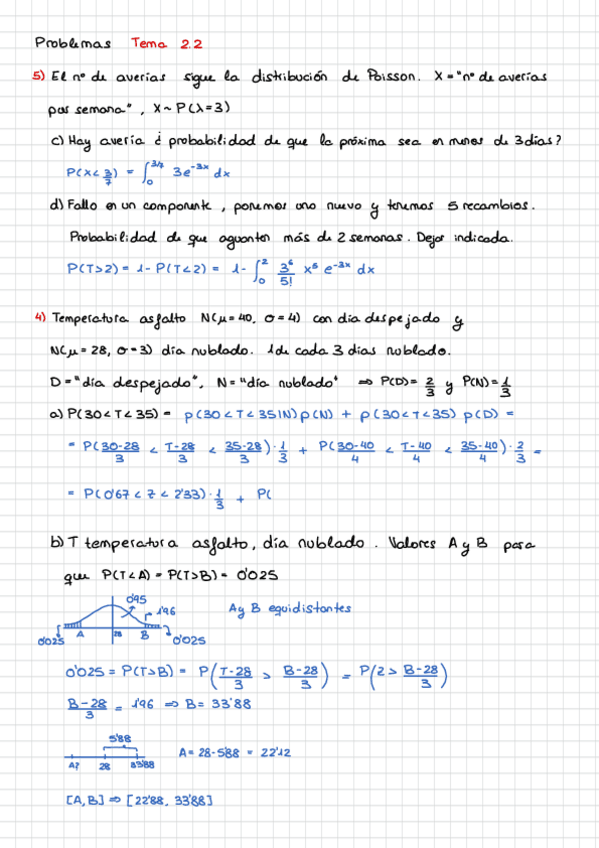 Problemas Tema 2.2
5) El nº de averías sigue la distribución de Poisson. X = "nº de averías
por semana", X ~ P(λ=3)
c) Hay avería ¿ probabilidad de que la próxima sea en menos de 3 días?
P(X < 3/7) = ∫₀^(3/7) 3e^(-3x) dx
d) Fallo en un componente, ponemos uno nuevo y tenemos 5 recambios.
Probabilidad de que aguanten más de 2 semanas. Dejar indicada.
P(T>2) = 1 - P(T<2) = 1 - ∫₀² 3⁶/5! x⁵ e^(-3x) dx
4) Temperatura asfalto N(μ=40, σ=4) con día despejado y
N(μ=28, σ=3) día nublado. 1 de cada 3 días nublado.
D = "día despejado", N = "día nublado" ⇒ P(D) = 2/3 y P(N) = 1/3
a) P(30<T<35) = P(30<T<35|N) P(N) + P(30<T<35) P(D) =
= P(30-28/3 < T-28/3 < 35-28/3)·1/3 + P(30-40/4 < T-40/4 < 35-40/4)·2/3 =
= P(0'67 < Z < 2'33)·1/3 + P(
b) T temperatura asfalto, día nublado. Valores A y B para
que P(T<A) = P(T>B) = 0'025
0'95
1'96
A y B equidistantes
A 28 B
0'025 0'025
0'025 = P(T>B) = P(T-28/3 > B-28/3) = P(Z > B-28/3)
B-28/3 = 1'96 ⇒ B = 33'88
5'88
A = 28-5'88 = 22'12
A? 28 33'88
[A,B] ⇒ [22'88, 33'88]